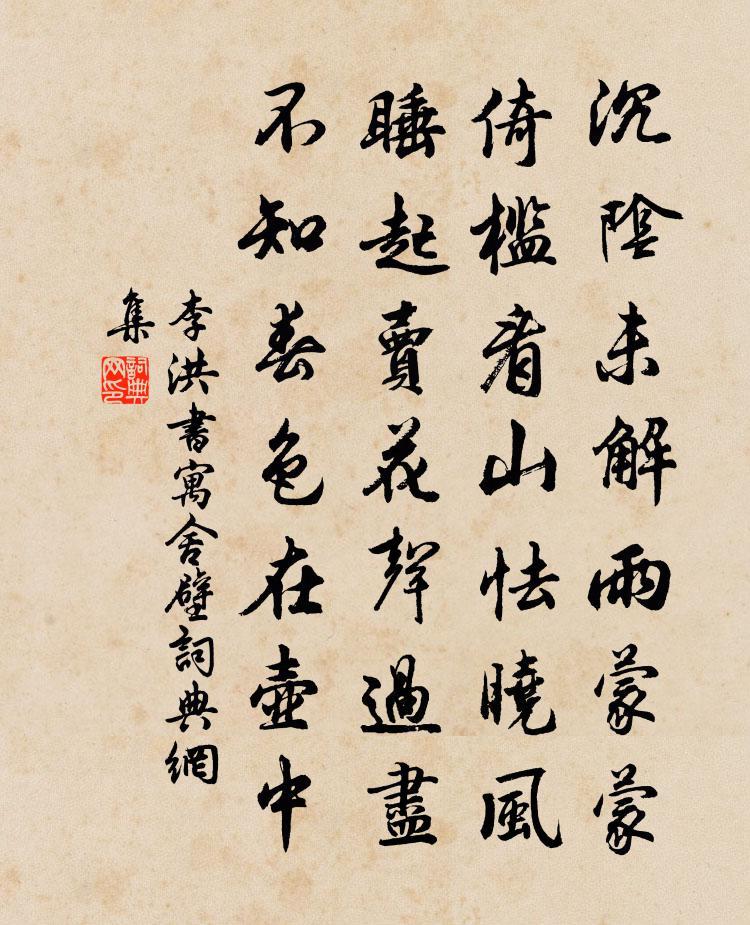 沉陰未解雨蒙蒙
倚檻看山怯曉風
睡起賣花聲過盡
不知春色在壺中
李洪書寓舍壁詞典網
集
詞典
网印